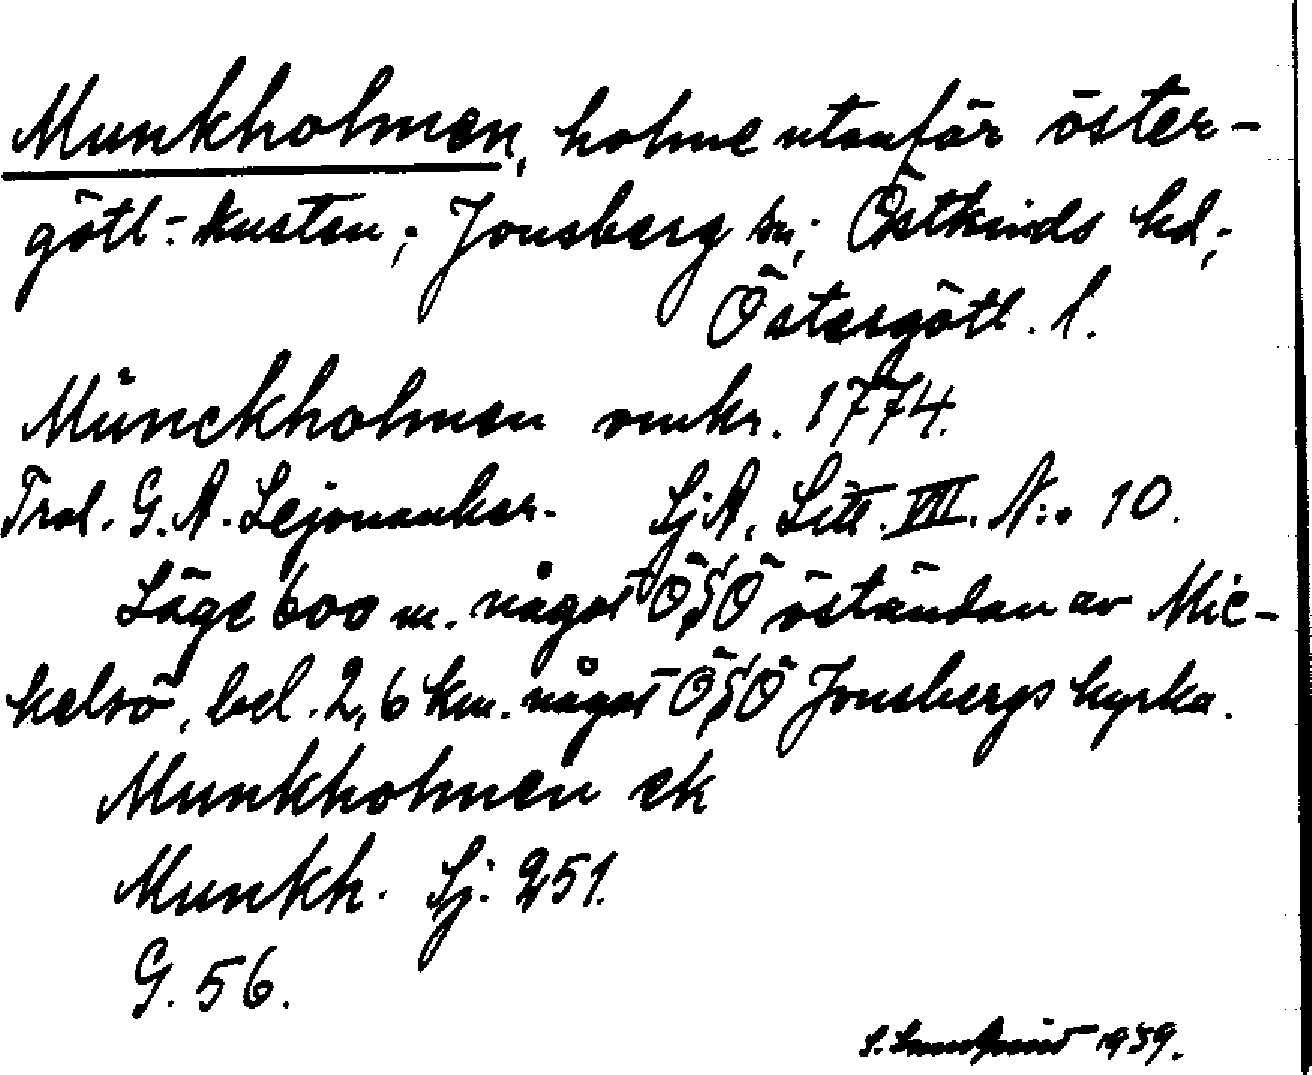 Munkholmen, holme utanför öster-
götl.-kusten; Jonsberg sn; Östkinds hd;
Östergötl. l.
Münckholmen omkr. 1774.
Trol. G. A. Lejonanker. SjA, Litt. VIII. N:o 10.
Läge 600 m. något ÖSÖ öständan av Mic-
kelsö, bel. 2,6 km. något ÖSÖ Jonsbergs kyrka.
Munkholmen ek
Munkh. Sj. 251.
G. 56.
S. 1939.